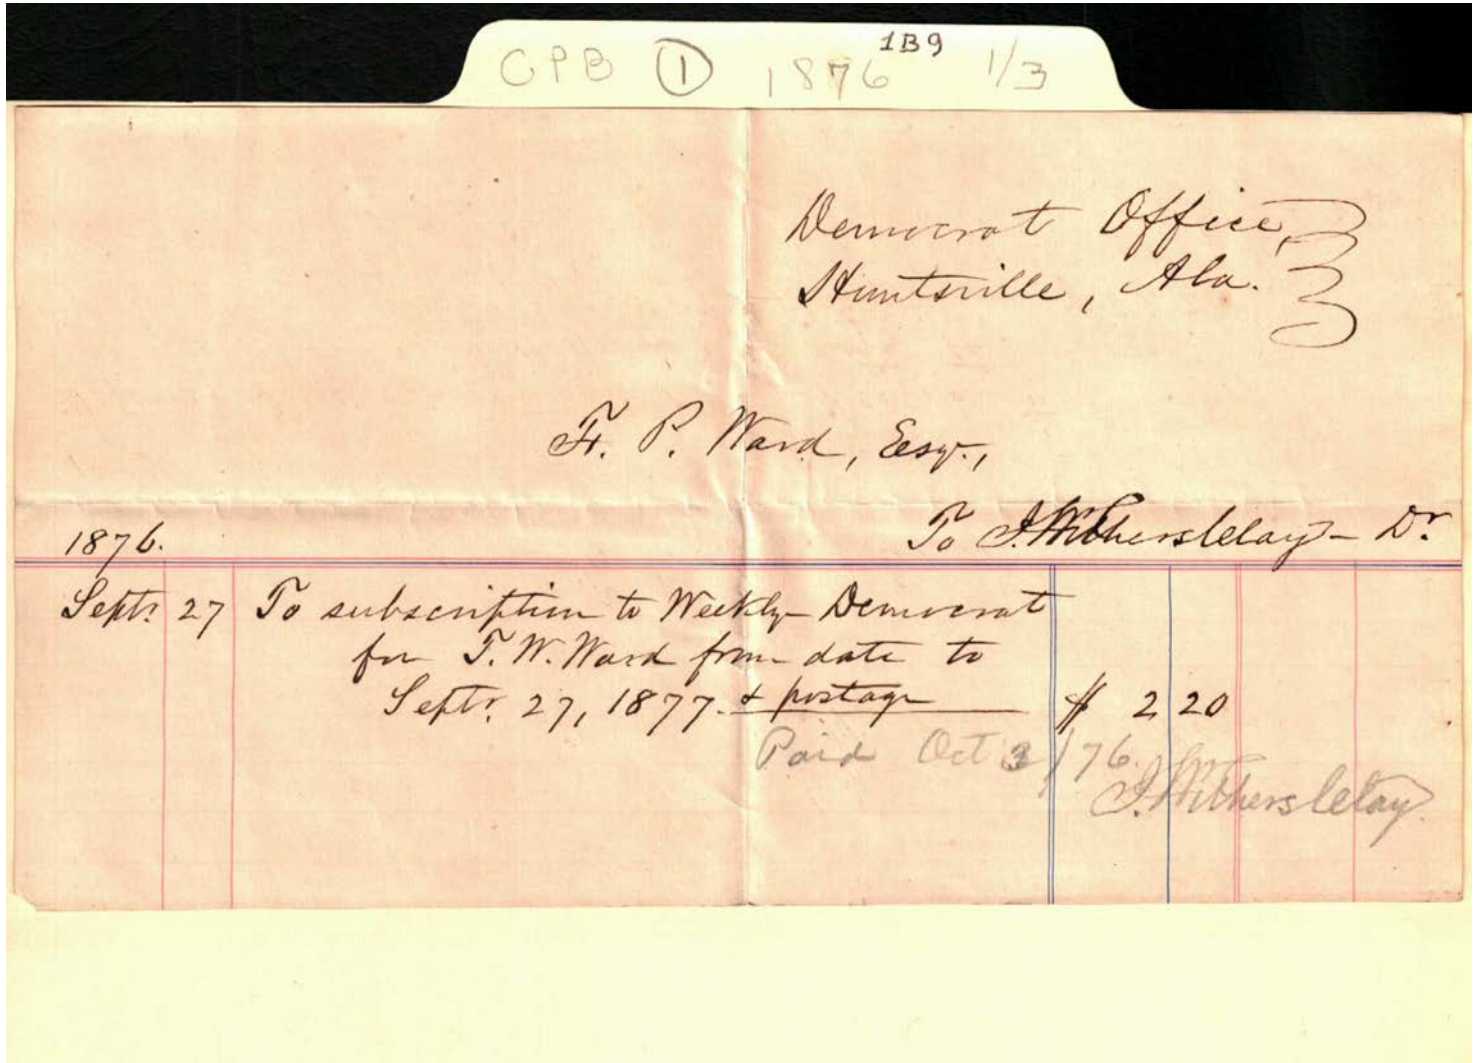 CPB 1 1876 1B9 1/3
Democrat Office,
Huntsville, Ala.
F. P. Ward, Esqr.,
1876. To J. Withers Clay - Dr.
Septr. 27 To subscription to Weekly Democrat
for T. W. Ward from date to
Septr. 27, 1877. & postage $ 2 20
Paid Oct 3/76.
J. Withers Clay